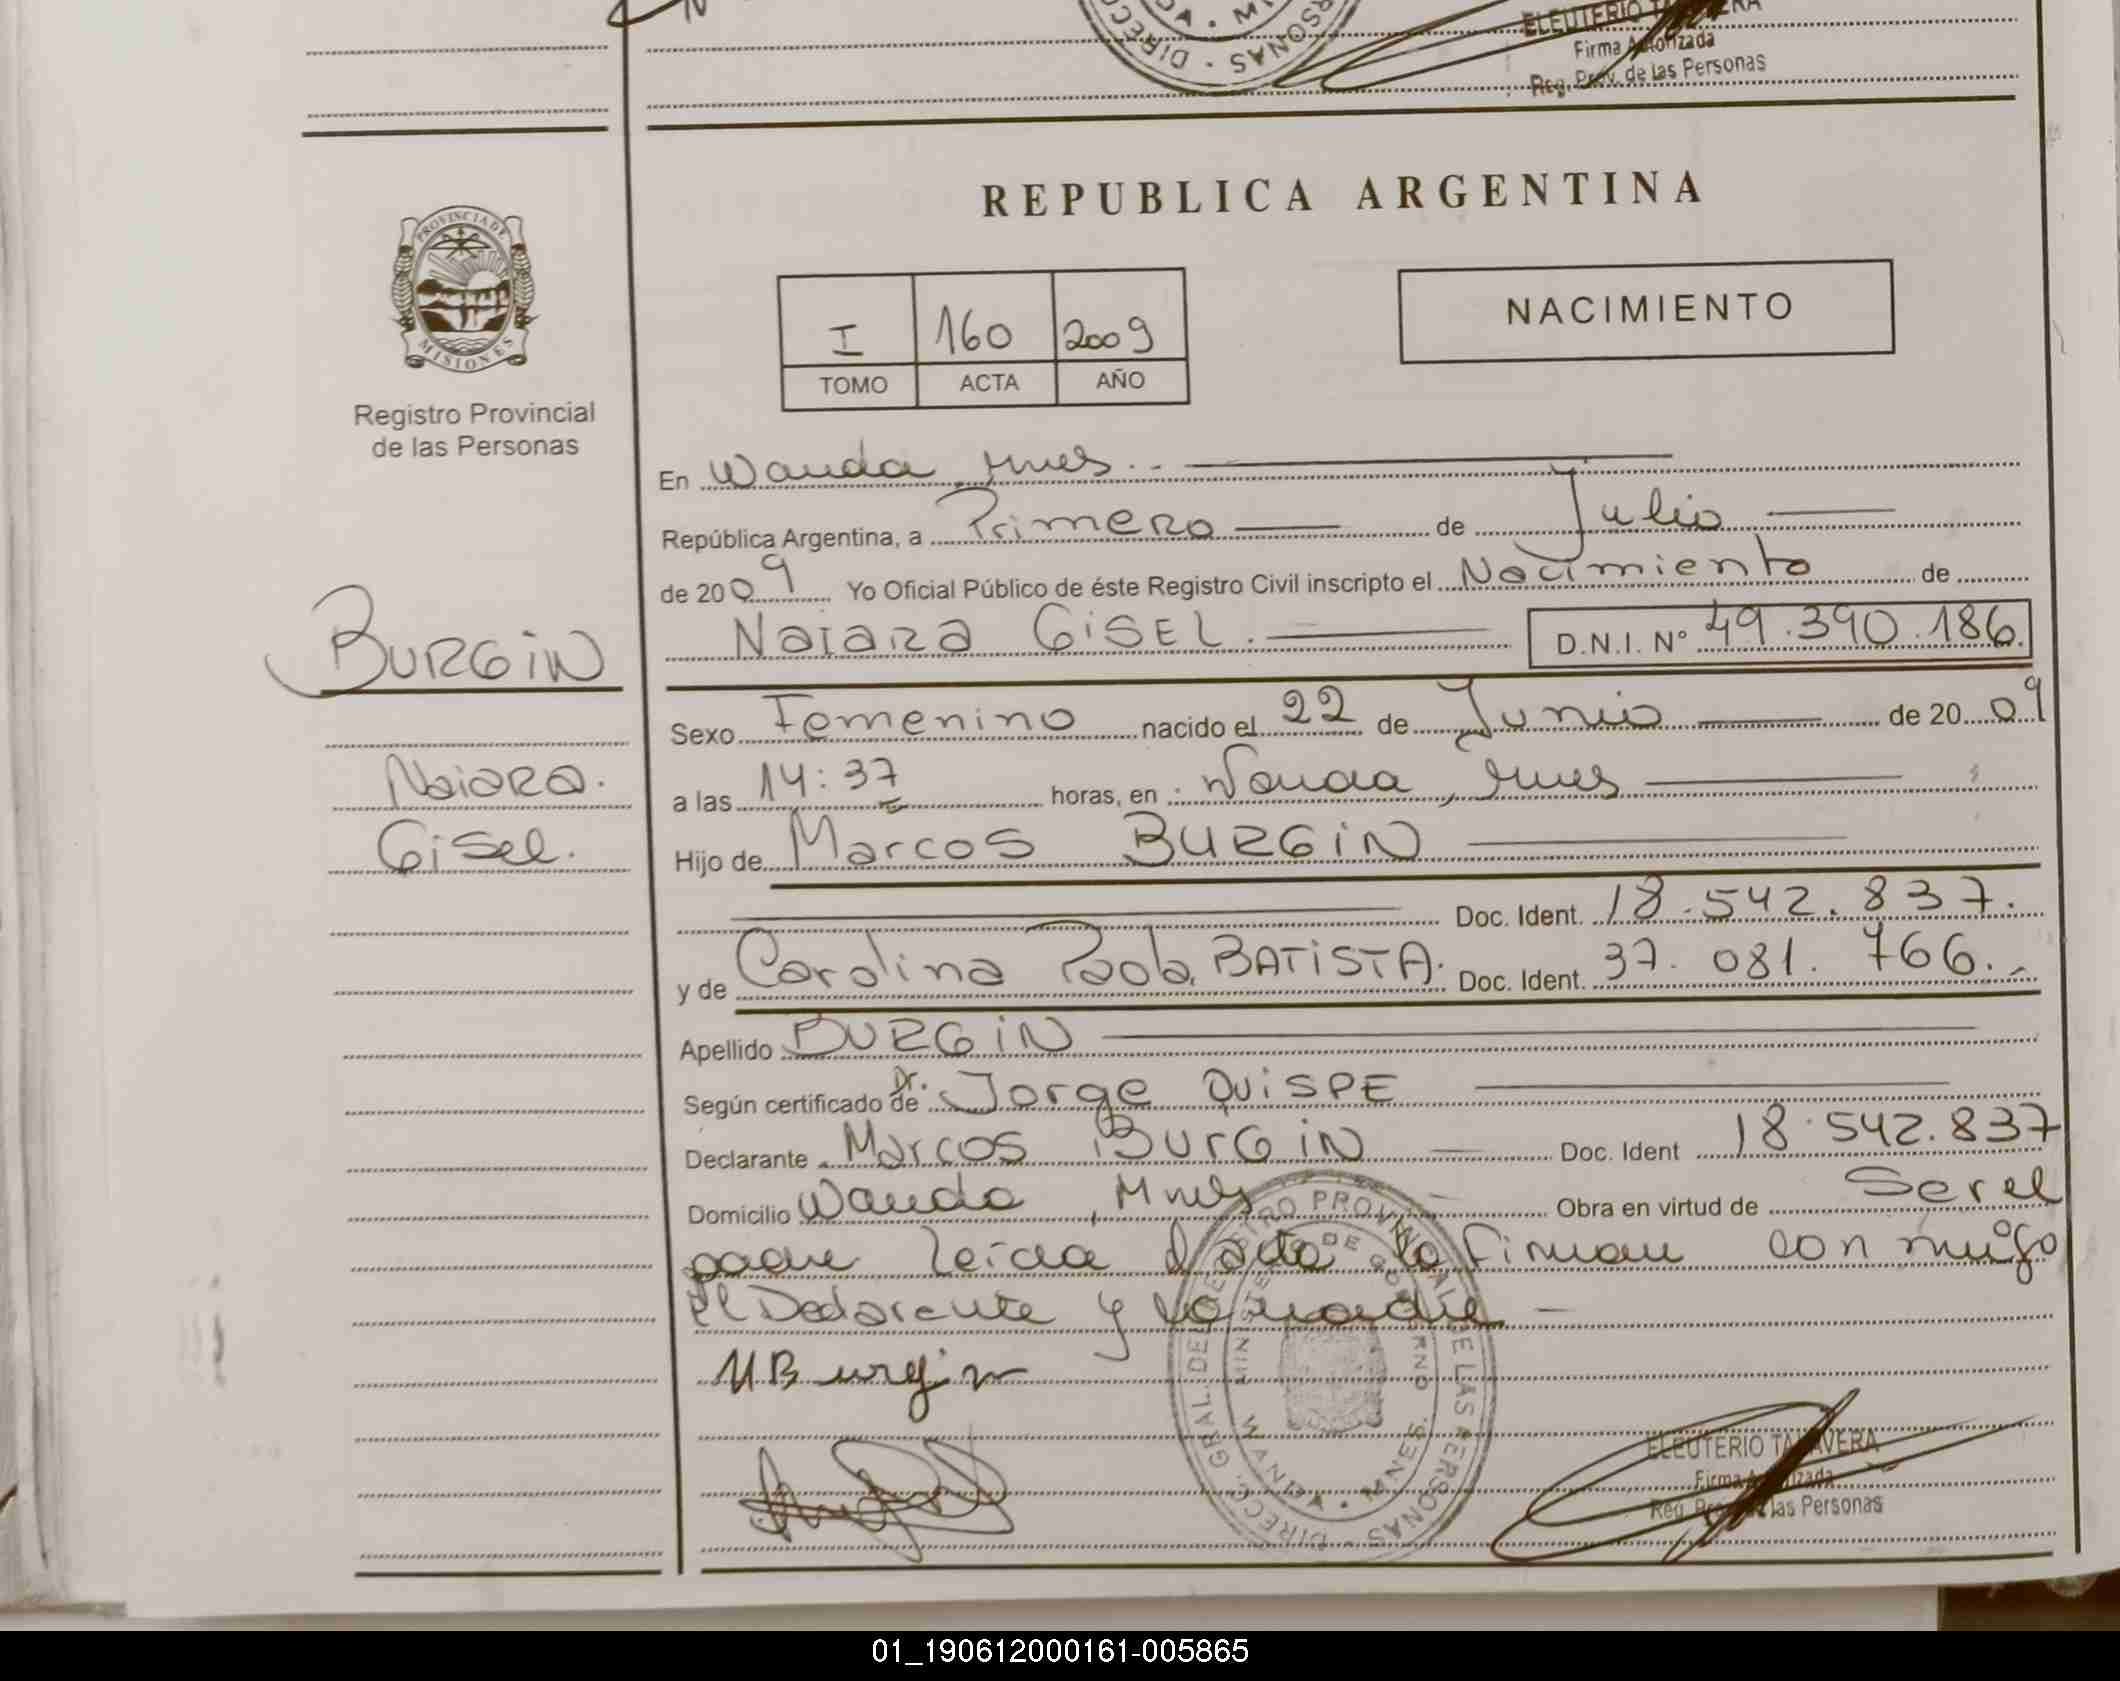 ELEUTERIO TALAVERA
Firma Autorizada
Reg. Prov. de las Personas
REPUBLICA ARGENTINA
PROVINCIA DE
MISIONES
Registro Provincial
de las Personas
I 160 2009
TOMO ACTA AÑO
NACIMIENTO
En Wanda, Mnes.
República Argentina, a Primero de Julio
de 2009 Yo Oficial Público de éste Registro Civil inscripto el Nacimiento de
BURGIN
NaIARA GISEL. D.N.I. Nº 49.390.186.
Sexo Femenino nacido el 22 de Junio de 2009
Naiara.
a las 14:37 horas, en Wanda, Mnes
Gisel.
Hijo de Marcos BURGIN
Doc. Ident. 18.542.837.
y de Carolina Paola BATISTA. Doc. Ident. 37.081.766.
Apellido BURGIN
Según certificado de Dr. Jorge QUISPE
Declarante Marcos BURGIN Doc. Ident 18.542.837
Domicilio Wanda, Mnes Obra en virtud de Ser el
padre Leida el acta la Firman conmigo
El Declarante y la madre
MBurgin
DIRECC. GRAL. DEL REGISTRO PROVINCIAL DE LAS PERSONAS
MINISTERIO DE GOBIERNO
WANDA · MNES.
ELEUTERIO TALAVERA
Firma Autorizada
Reg. Prov. de las Personas
01_190612000161-005865